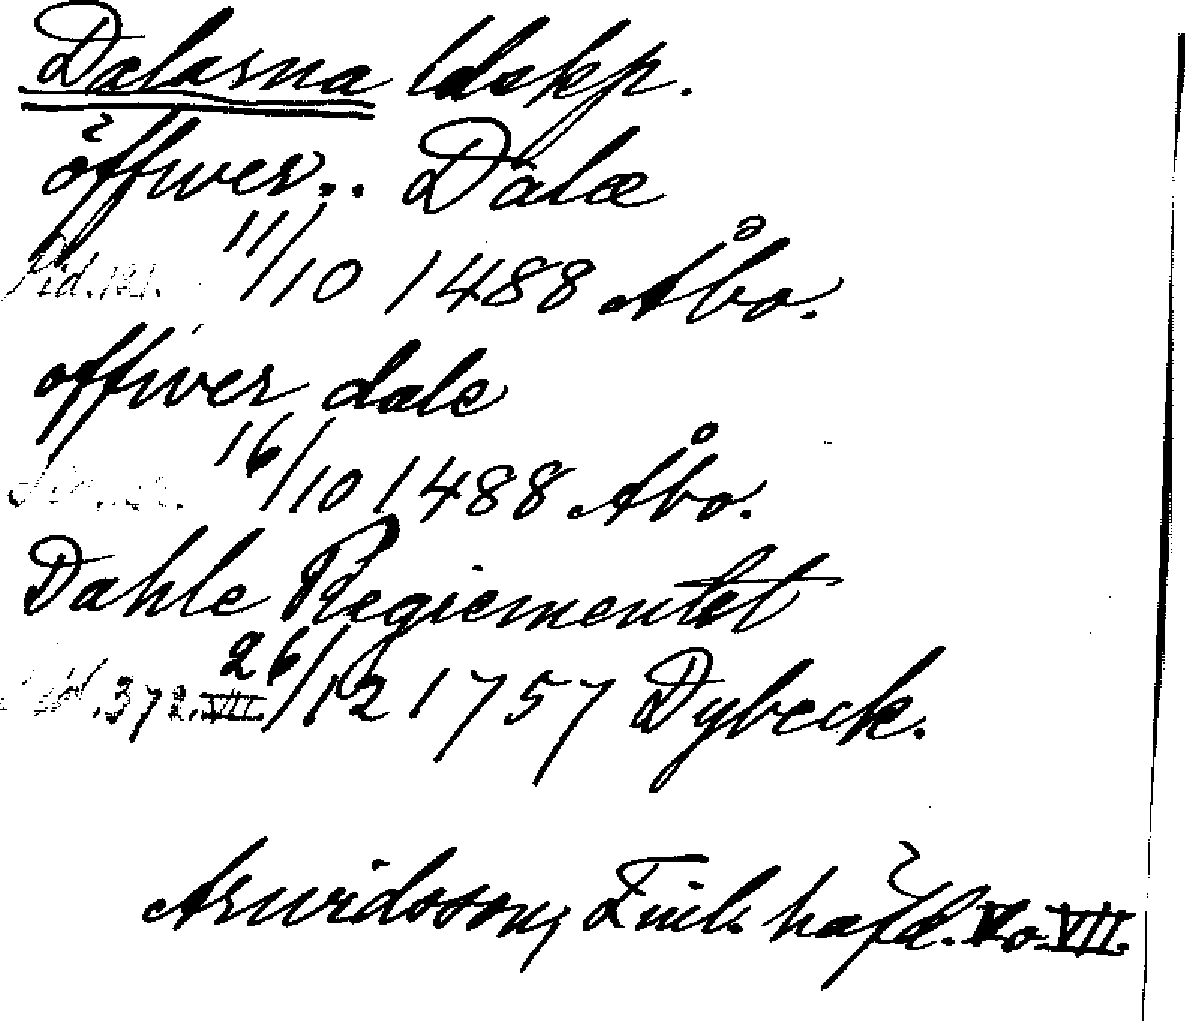 Dalarna ldskp.
öffwer.. Dalæ
Sid. 121. 11/10 1488 Åbo.
offwer dale
16/10 1488 Åbo.
Dahle Regiementet
372. VII. 26/12 1757 Dybeck.
Arwidsson, Finl. häfd. VII.